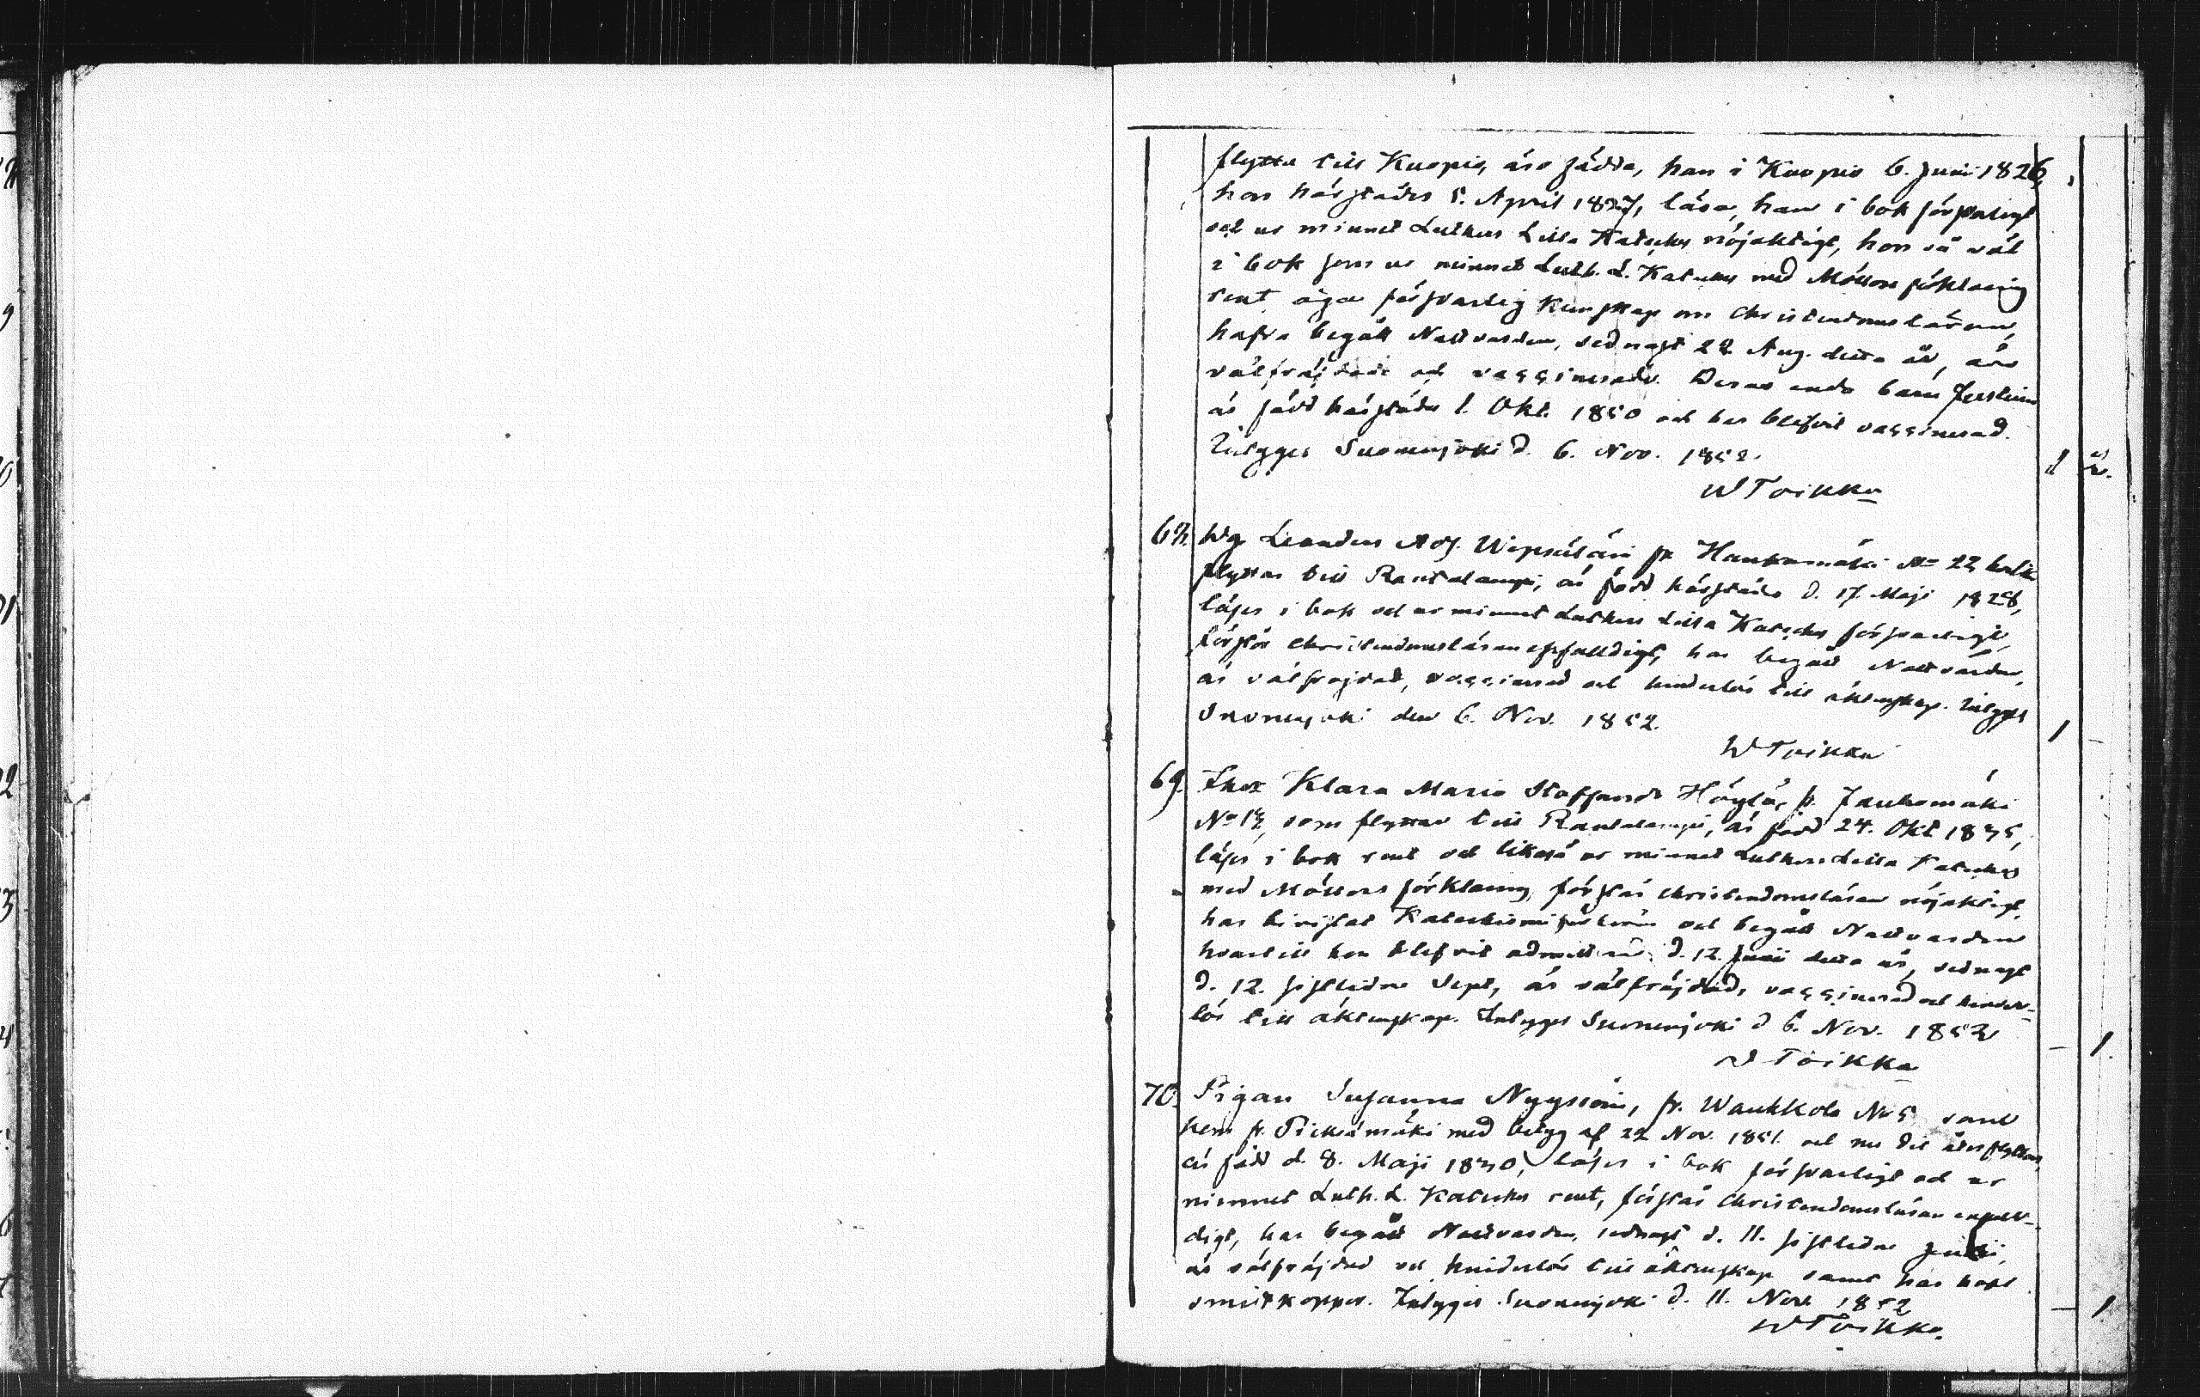 flytta till Kuopio, äro födde, han i Kuopio 6. Junii 1826,
hon härstädes 5. April 1827, läsa, han i bok försvarligt
och ur minnet Luthers Lilla Kateches nöjaktigt, hon så väl
i bok som ur minnet Luth. L. Kateches med Möllers förklaring
rent, äga försvarlig kunskap om christendomsläran,
hafva begått Nattvarden, sednast 22 Aug. detta år, äro
välfräjdade och vaccinerade. Deras enda barn
är född härstädes 1. Okt. 1850 och har blifvit vaccinerad.
Intygges Suonenjoki d. 6. Nov. 1852.
1 2.
W Toikka
68. Leander Adj. fr. Haukamäki No 22, hvilken
flyttar till Rautalampi, är född härstädes d. 17. Maji 1828,
läser i bok och ur minnet Luthers Lilla Kateches försvarligt,
förstår christendomsläran enfaldigt, har begått Nattvarden,
är välfräjdad, vaccinerad och hinderlös till äktenskap. Intygges
Suonenjoki den 6. Nov. 1852.
1 -
W Toikka
69. Klara Maria Staffansdr fr.
No 12, som flyttar till Rautalampi, är född 24. Okt 1835,
läser i bok rent och likaså ur minnet Luthers Lilla Kateches
med Möllers förklaring, förstår christendomsläran nöjaktigt,
har bevistat och begått Nattvarden
hvartill hon blifvit admitterad d. 12. Junii detta år, sednast
d. 12. sistledne Sept, är välfräjdad, vaccinerad och hinder-
lös till äktenskap. Intygges Suonenjoki d 6. Nov. 1852
- 1.
W Toikka
70. Pigan Susanna Nyyssöin, fr. No 5 som
kom fr. Pieksämäki med betyg af 22 Nov. 1851. och nu dit återflyttar,
är född d. 8. Maji 1830, läser i bok försvarligt och ur
minnet Luth. L. Kateches rent, förstår christendomsläran enfall-
digt, har begått Nattvarden, sednast d. 11. sistledne
är välfräjdad och hinderlös till äktenskap samt har haft
smittkoppor. Intygges Suonenjoki d. 11. Nov. 1852
- 1.
W Toikka.